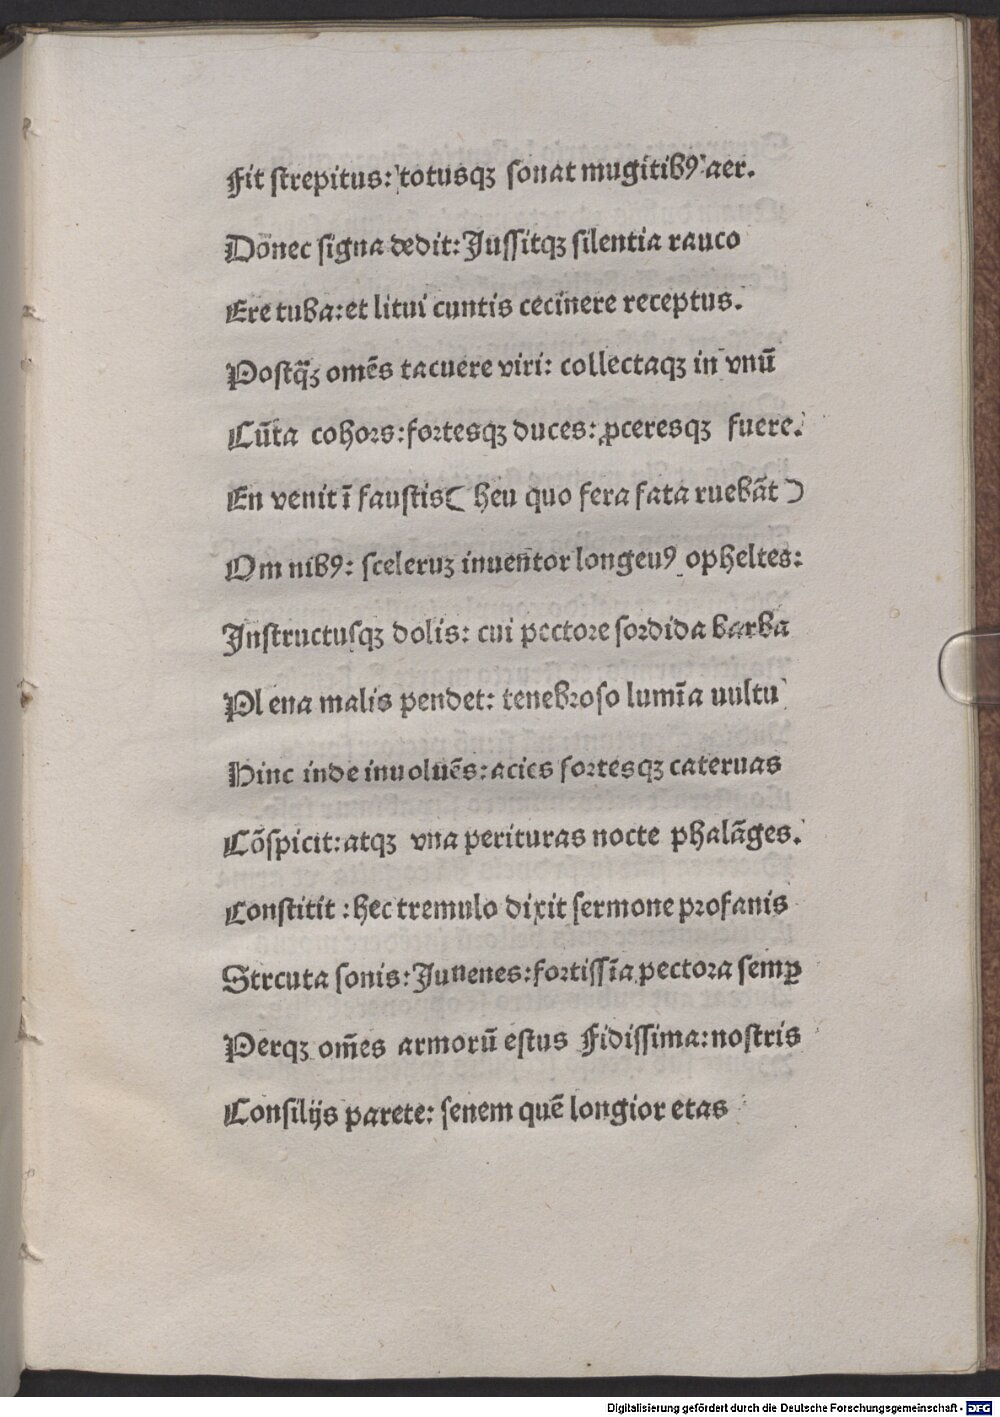 Fit strepitus: totusqꝫ sonat mugitibꝰ aer.
Donec signa dedit: Jussitqꝫ silentia rauco
Ere tuba: et litui cuntis cecinere receptus.
Postq̄ꝫ omēs tacuere viri: collectaqꝫ in vnū
Cūta cohors: fortesqꝫ duces: ꝓceresqꝫ fuere.
En venit ī faustis ( heu quo fera fata ruebāt )
Om nibꝰ: sceleruꝫ inuentor longeuꝰ opheltes:
Instructusqꝫ dolis: cui pectore sordida barba
Pl ena malis pendet: tenebroso lumīa uultu
Hinc inde inuoluēs: acies fortesqꝫ cateruas
Cōspicit: atqꝫ vna perituras nocte phalāges.
Constitit : hec tremulo dixit sermone profanis
Strcuta sonis: Juuenes: fortissīa pectora semꝑ
Perqꝫ om̄es armorū estus Fidissima: nostris
Consilijs parete: senem quē longior etas
Digitalisierung gefördert durch die Deutsche Forschungsgemeinschaft - DFG